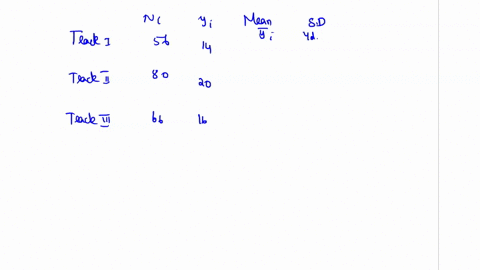 Ni yi Mean SD
Track I 56 14 ȳi yd.
Track II 80 20
Track III 66 16